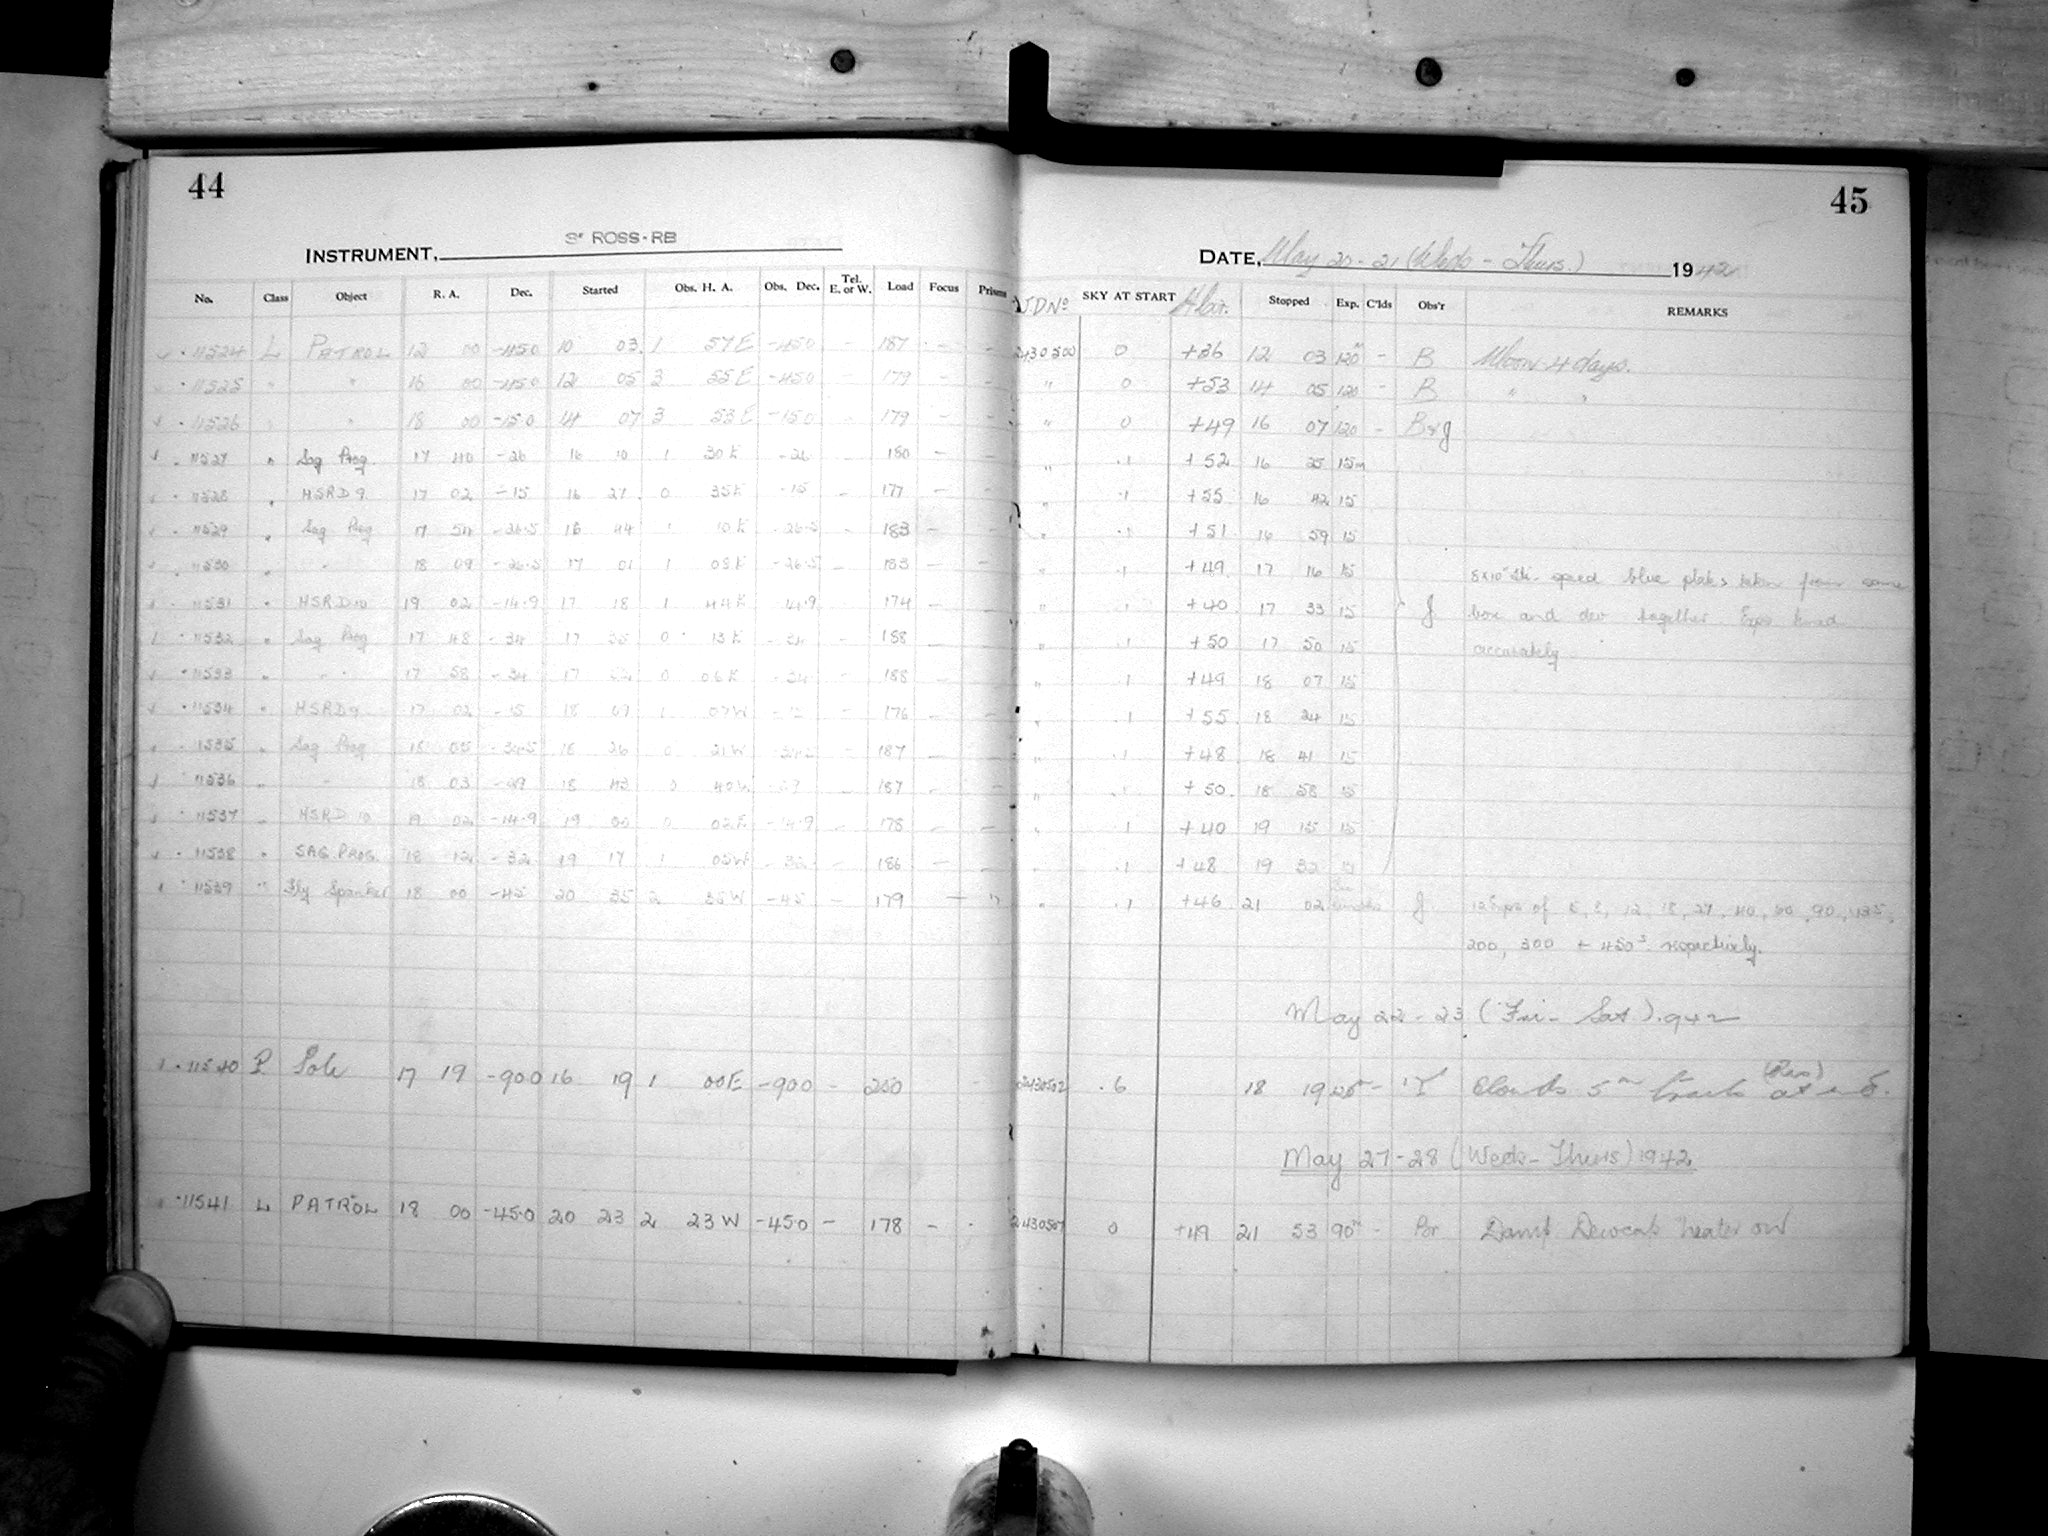 44
INSTRUMENT, 3" ROSS-RB
No. Class Object R. A. Dec. Started Obs. H. A. Obs. Dec. Tel. E. or W. Load Focus Prisms
11524 L PATROL 12 00 -45.0 10 03 1 57E -45.0 - 187 - -
11525 " " 16 00 -45.0 12 05 3 55E -45.0 - 179 - -
11526 " " 18 00 -15.0 14 07 3 53E -15.0 - 179 - -
11527 " Sag Prog. 17 40 -26 16 10 1 30E -26 180 - -
11528 " MSRD 9 17 02 -15 16 27 0 35E -15 - 177 - -
11529 " Sag Prog 17 54 -26.5 16 44 1 10E -26.5 - 183 - -
11530 " " 18 09 -26.5 17 01 1 08E -26.5 - 183 - -
11531 " MSRD 10 19 02 -14.9 17 18 1 44E -14.9 - 174 - -
11532 " Sag Prog 17 48 -34 17 35 0 13E -34 - 188 - -
11533 " " 17 58 -34 17 52 0 06E -34 - 188 - -
11534 " MSRD 9 17 02 -15 18 09 1 07W -15 - 176 - -
11535 " Sag Prog 18 05 -34.5 18 26 0 21W -34.5 - 187 - -
11536 " " 18 03 18 43 0 40W - 187 - -
11537 " MSRD 10 19 02 -14.9 19 00 0 02E -14.9 - 178 - -
11538 " SAG. PROG. 18 12 -32 19 17 1 05W -32 - 186 - -
11539 " Fly Spanker 18 00 -45 20 35 2 35W -45 - 179 - "
11540 P Pole 17 19 -90.0 16 19 1 00E -90.0 - 250 -
11541 L PATROL 18 00 -45.0 20 23 2 23W -45.0 - 178 - -
45
DATE, May 20-21 (Weds - Thurs.) 1942
J D No SKY AT START Stopped Exp. C'lds Obs'r REMARKS
2430500 0 +36 12 03 120m - B Moon 4 days.
" 0 +53 14 05 120 - B " "
" 0 +49 16 07 120 - B & J
" .1 +52 16 25 15m
" .1 +55 16 42 15
" .1 +51 16 59 15
" .1 +49 17 16 15 8x10" speed blue plates taken from same
" .1 +40 17 33 15 J box and dev together Exps timed
" .1 +50 17 50 15 accurately
" .1 +49 18 07 15
" .1 +55 18 24 15
" .1 +48 18 41 15
" .1 +50 18 58 15
" .1 +40 19 15 15
" .1 +48 19 32 15
" .1 +46 21 02 J 12 Exps of 5, 8, 12, 18, 27, 40, 60, 90, 135,
200, 300 + 450s respectively.
May 22-23 (Fri - Sat) 1942
2430502 .6 18 19 120m - Clouds 5m
May 27-28 (Weds - Thurs) 1942
2430507 0 +49 21 53 90m - Br Damp Dewcap heater on